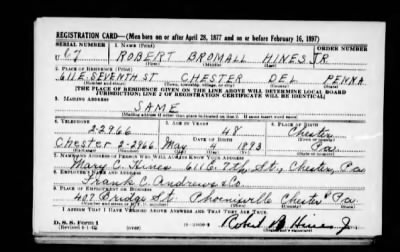 REGISTRATION CARD—(Men born on or after April 28, 1877 and on or before February 16, 1897)
SERIAL NUMBER 1. NAME (Print) ORDER NUMBER
U 67 ROBERT BROMALL HINES JR
(First) (Middle) (Last)
2. PLACE OF RESIDENCE (Print)
611 E. SEVENTH ST CHESTER DEL PENNA
(Number and street) (Town, township, village, or city) (County) (State)
[THE PLACE OF RESIDENCE GIVEN ON THE LINE ABOVE WILL DETERMINE LOCAL BOARD
JURISDICTION; LINE 2 OF REGISTRATION CERTIFICATE WILL BE IDENTICAL]
3. MAILING ADDRESS
SAME
[Mailing address if other than place indicated on line 2. If same insert word same]
4. TELEPHONE 5. AGE IN YEARS 6. PLACE OF BIRTH
2-2966 48 Chester
DATE OF BIRTH (Town or county)
Chester 2-2966 May 4 1893 Pa
(Exchange) (Number) (Mo.) (Day) (Yr.) (State or country)
7. NAME AND ADDRESS OF PERSON WHO WILL ALWAYS KNOW YOUR ADDRESS
Mary C. Hines 611 E. 7th St, Chester, Pa
8. EMPLOYER'S NAME AND ADDRESS
Frank C. Andrews & Co.
9. PLACE OF EMPLOYMENT OR BUSINESS
407 Bridge St. Phoenixville Chester Pa.
(Number and street or R. F. D. number) (Town) (County) (State)
I AFFIRM THAT I HAVE VERIFIED ABOVE ANSWERS AND THAT THEY ARE TRUE.
D. S. S. Form 1
(Revised 4-1-42) (over)
Robert B Hines Jr